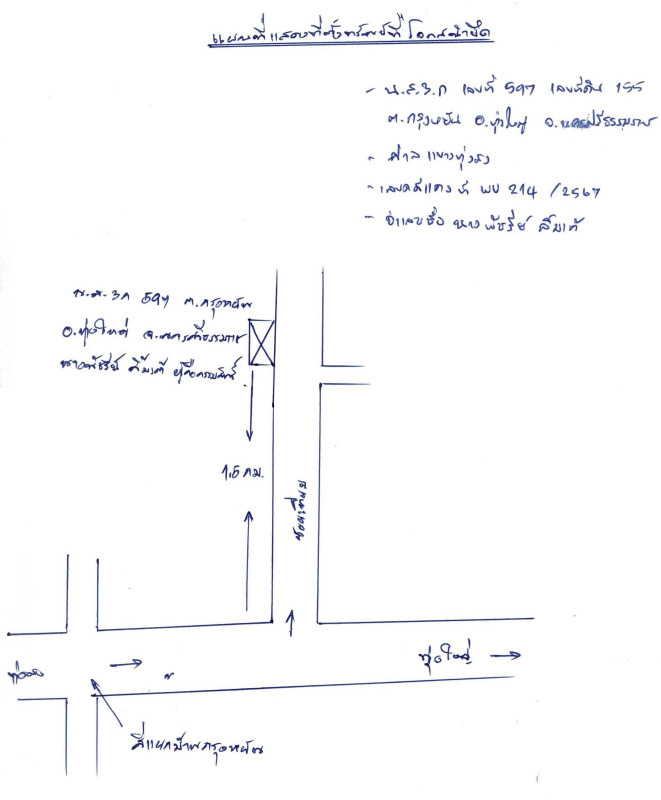 แผนที่แสดงที่ตั้งทรัพย์ที่โจทก์นำยึด
- น.ส.3.ก เลขที่ 597 เลขที่ดิน 155
ต.กรุงหยัน อ.ทุ่งใหญ่ จ.นครศรีธรรมราช
- ศาลแขวงทุ่งสง
- เลขคดีแดงที่ ผบ 214 /2567
- จำเลยชื่อ นาง พัชรีย์
น.ส.3ก 597 ต.กรุงหยัน
อ.ทุ่งใหญ่ จ.นครศรีธรรมราช
นางพัชรีย์ ผู้ถือกรรมสิทธิ์
1.5 กม.
ทุ่งใหญ่
สี่แยกบ้านกรุงหยัน